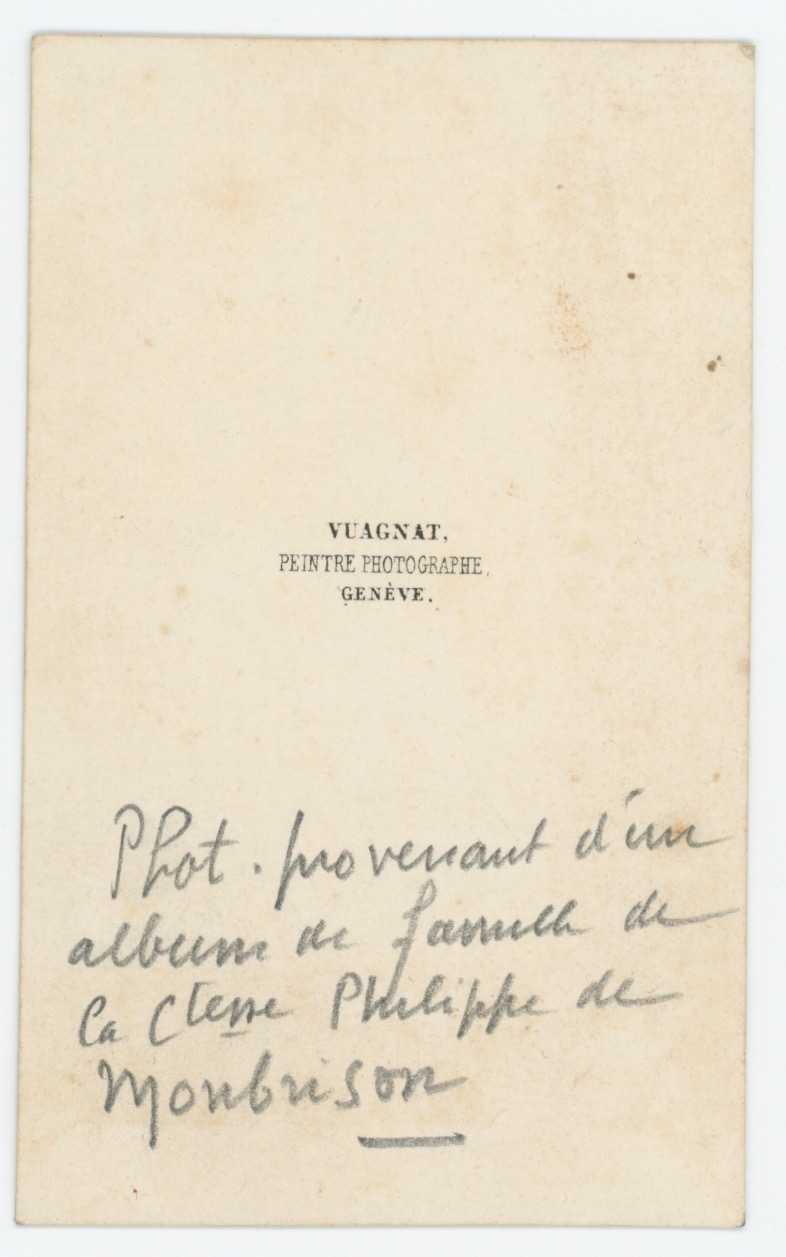 VUAGNAT,
PEINTRE PHOTOGRAPHE,
GENÈVE.
Phot. provenant d'un
album de famille de
la Ctesse Philippe de
Monbrison